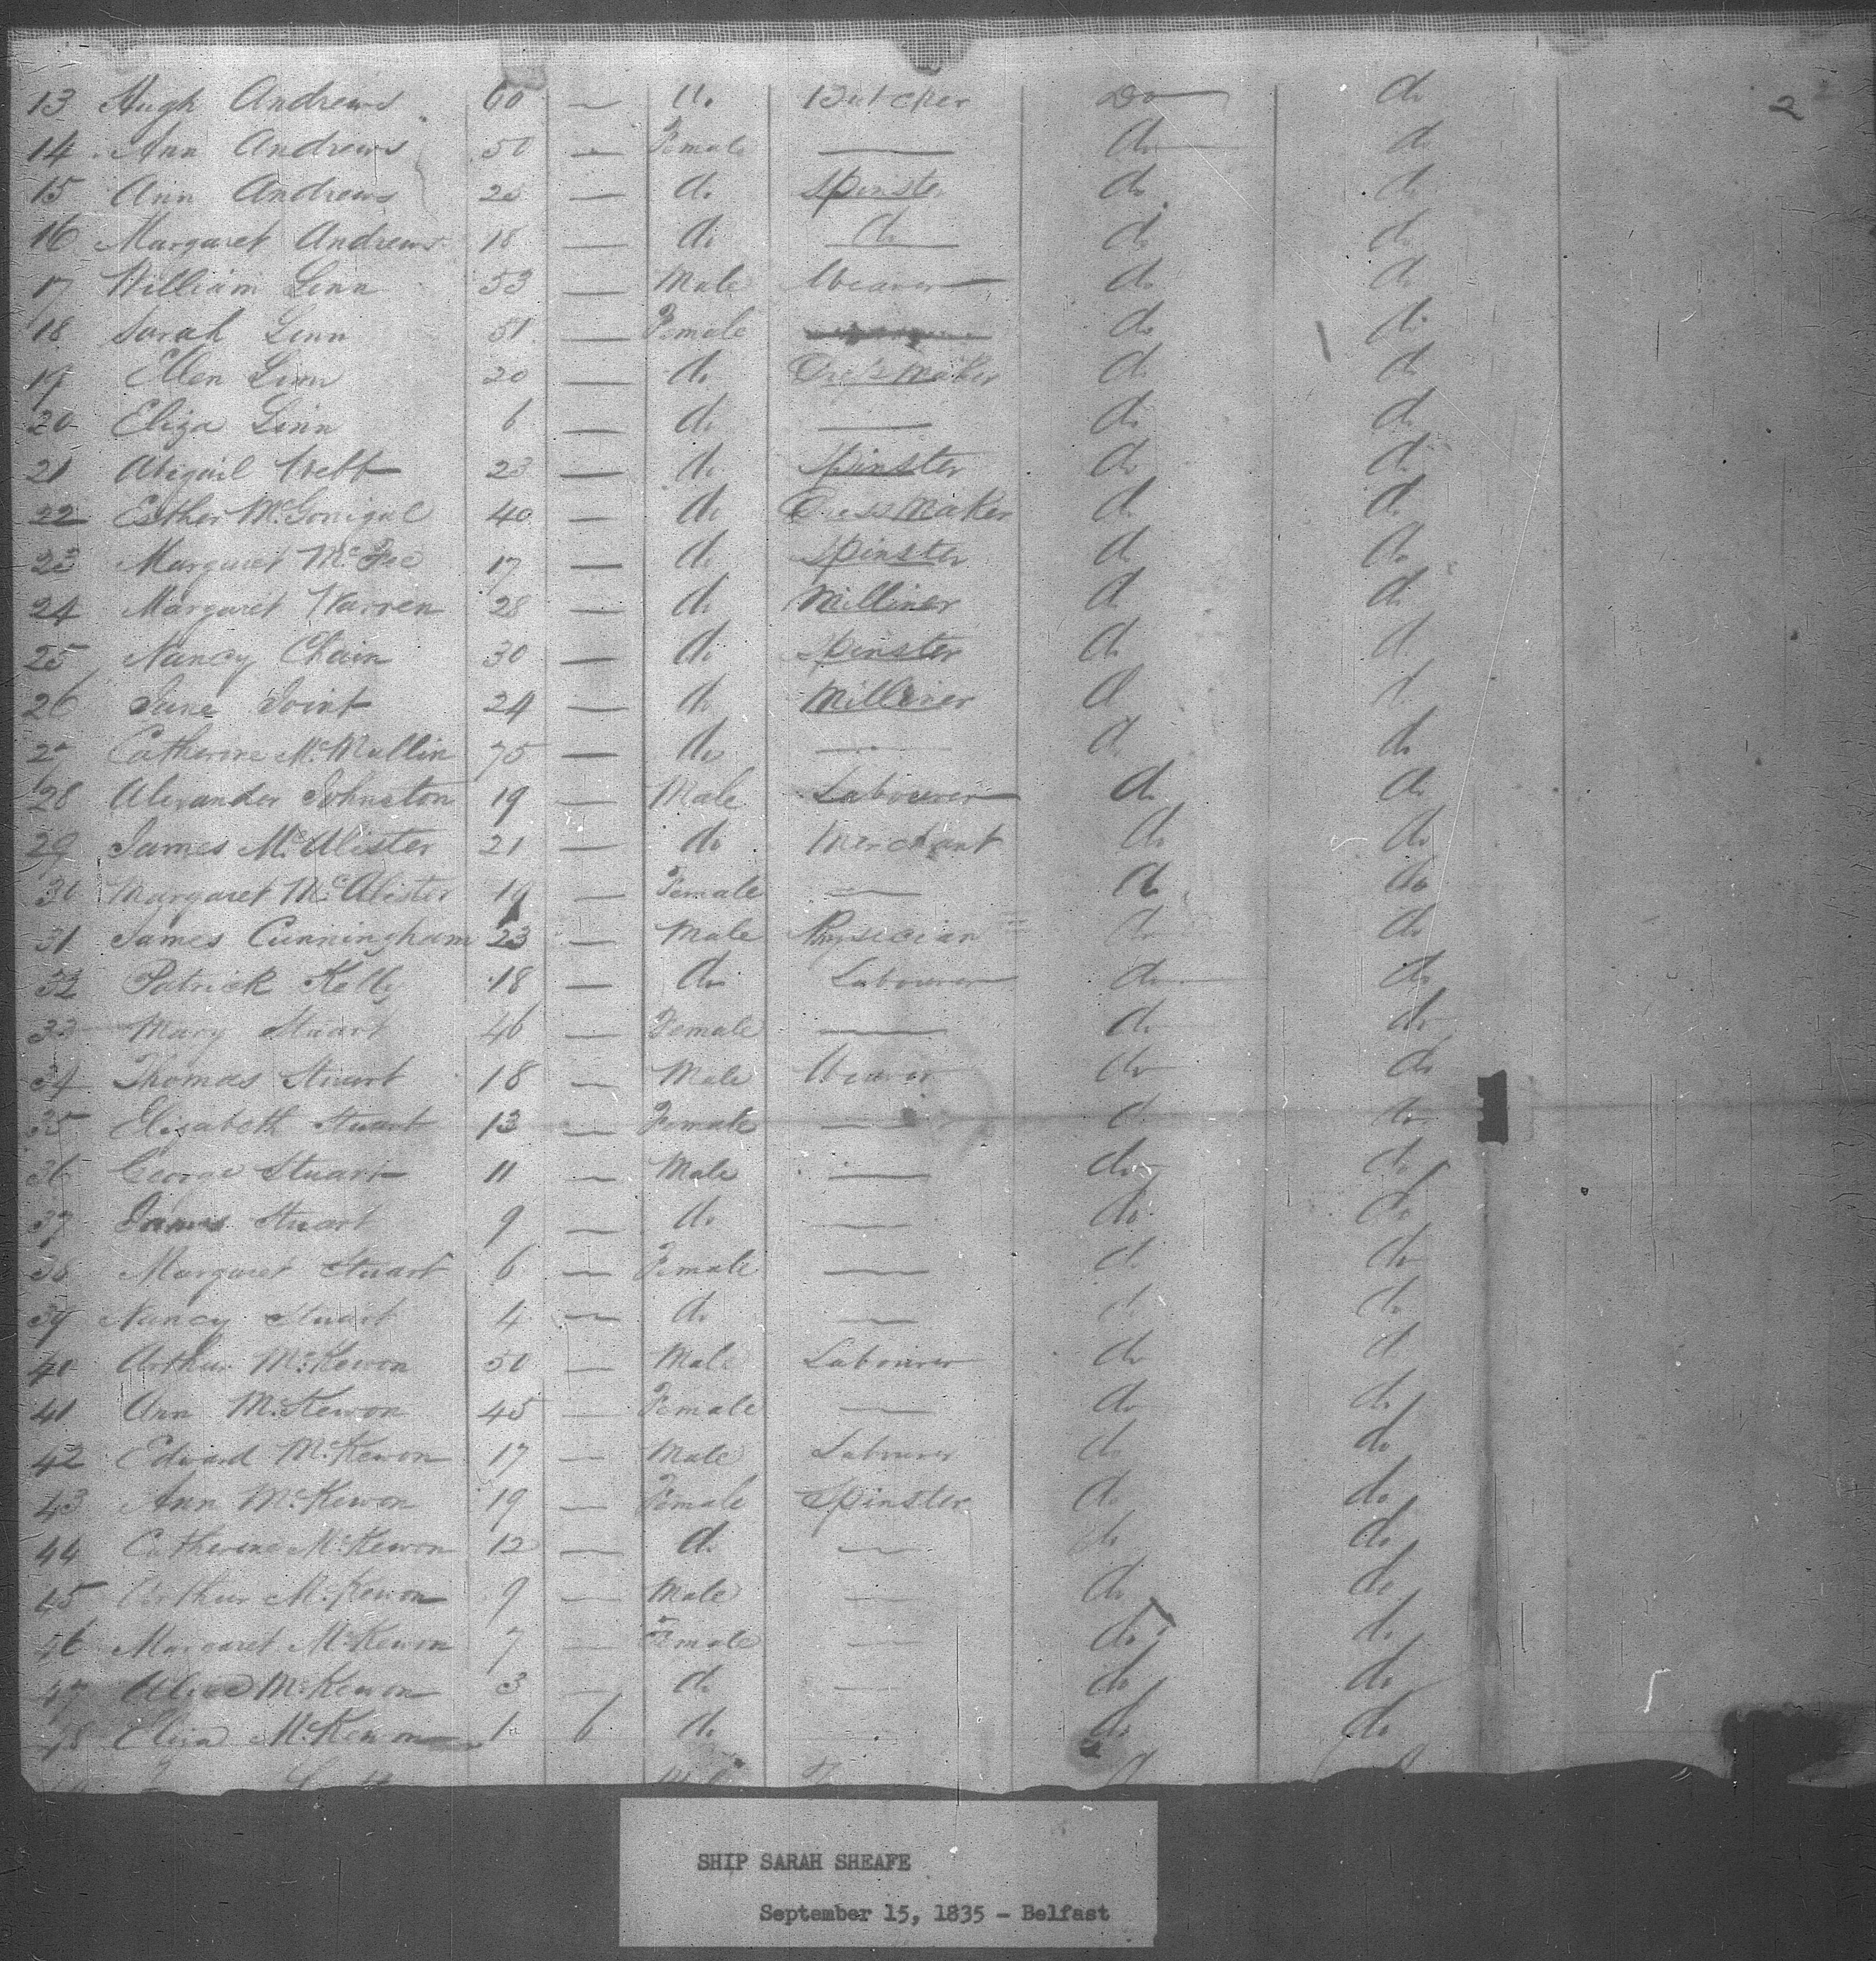 2
13 Hugh Andrews 60 — do. Butcher Do do
14 Ann Andrews 50 — Female — do do
15 Ann Andrews 25 — do. Spinster do do
16 Margaret Andrews 18 — do do do do
17 William Linn 53 — Male Weaver do do
18 Sarah Linn 51 — Female do do
19 Ellen Linn 20 — do Dress Maker do do
20 Eliza Linn 6 — do. — do do
21 Abigail Webb 23 — do Spinster do do
22 Esther McGonigal 40 — do Dress Maker do do
23 Margaret McFee 17 — do Spinster do do
24 Margaret Warren 28 — do Milliner do do
25 Nancy Chain 30 — do Spinster do do
26 Jane Joint 24 — do Milliner do do
27 Catherine McMullin 75 — do — do do
28 Alexander Johnston 19 — Male Labourer do do
29 James McAlister 21 — do Merchant do do
30 Margaret McAlister 19 — Female — do do
31 James Cunningham 23 — Male Physician do do
32 Patrick Kelly 18 — do Labourer do do
33 Mary Stuart 46 — Female — do do
34 Thomas Stuart 18 — Male Weaver do do
35 Elizabeth Stuart 13 — Female — do do
36 George Stuart 11 — Male — do do
37 James Stuart 9 — do — do do
38 Margaret Stuart 6 — Female — do do
39 Nancy Stuart 4 — do — do do
40 Arthur McKewon 50 — Male Labourer do do
41 Ann McKewon 45 — Female — do do
42 Edward McKewon 17 — Male Labourer do do
43 Ann McKewon 19 — Female Spinster do do
44 Catherine McKewon 12 — do — do do
45 Arthur McKewon 9 — Male — do do
46 Margaret McKewon 7 — Female — do do
47 McKewon 3 — do — do do
48 Eliza McKewon 1 6 do do do
SHIP SARAH SHEAFE
September 15, 1835 - Belfast